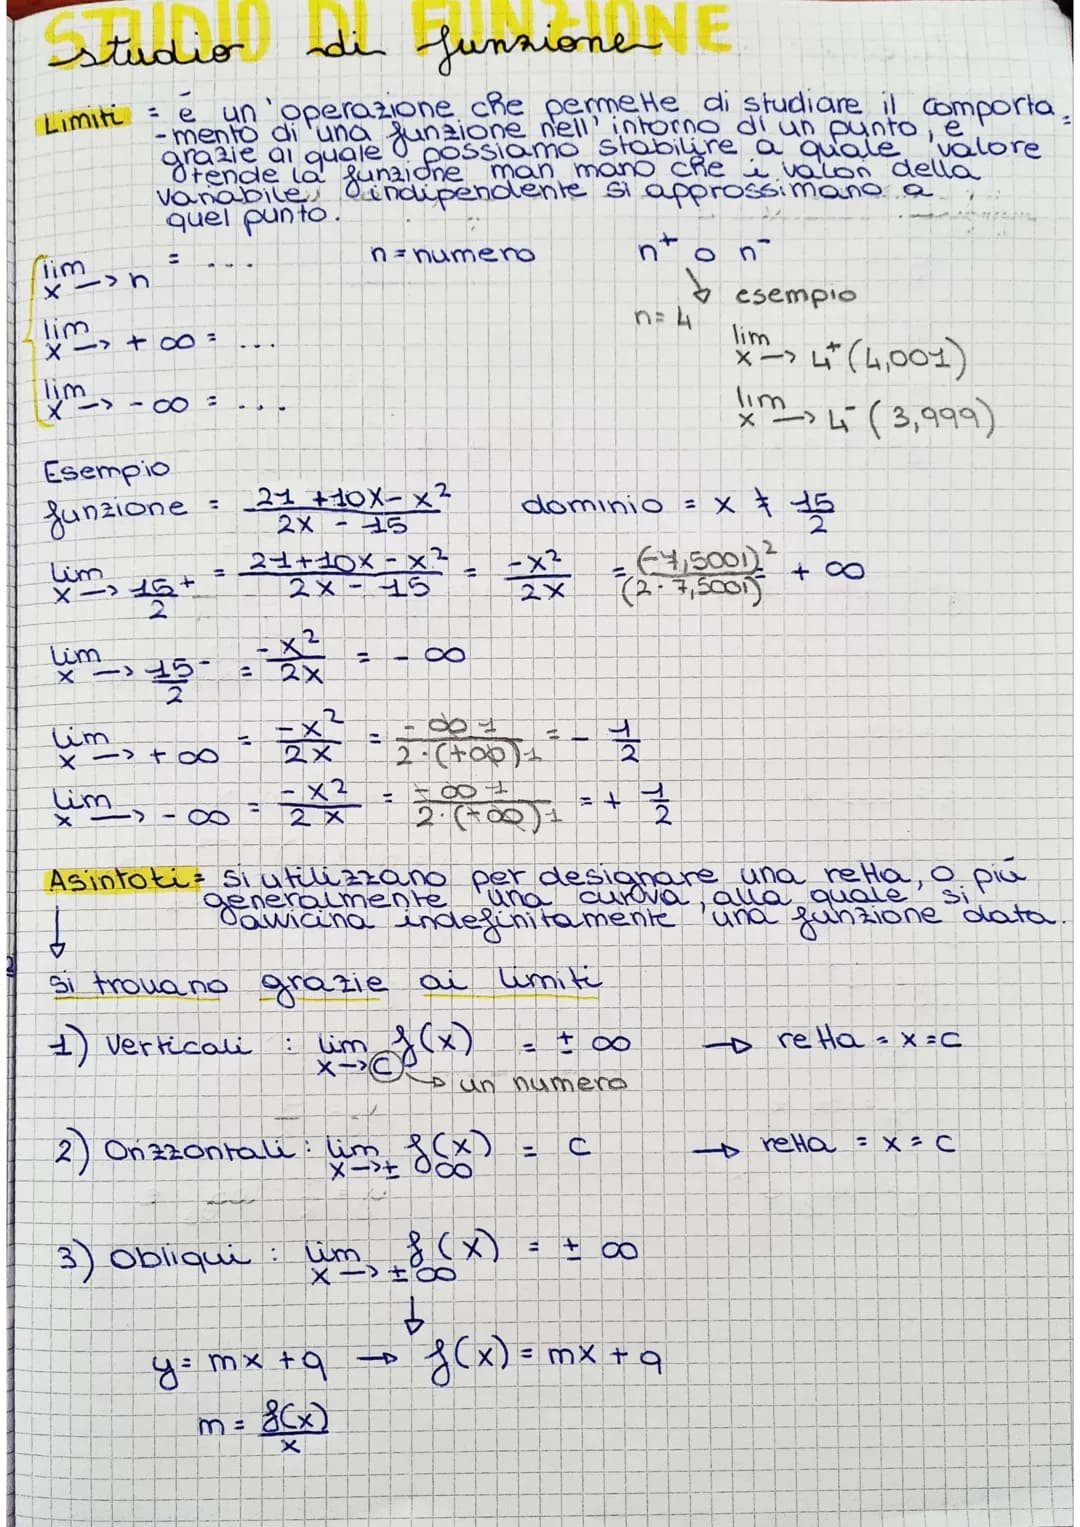 STUDIO DI FUNZIONE
studio di funzione
Limiti = è un'operazione che permette di studiare il comporta
-mento di una funzione nell'intorno di un punto, e
grazie al quale possiamo stabilire a quale valore
tende la funzione man mano che i valori della
variabile indipendente si approssimano a
quel punto.
lim x → n = ... n = numero n⁺ o n⁻
↓ esempio
lim x → + ∞ = ... n = 4 lim x → 4⁺ (4,001)
lim x → - ∞ = ... lim x → 4⁻ (3,999)
Esempio
funzione = (21 + 10x - x²)/(2x - 15) dominio = x ≠ 15/2
lim x → 15/2⁺ = (21 + 10x - x²)/(2x - 15) = -x²/2x = (-7,5001)²/(2 · 7,5001) = + ∞
lim x → 15/2⁻ = -x²/2x = - ∞
lim x → + ∞ = -x²/2x = (- ∞ 1)/(2 · (+∞) 1) = - 1/2
lim x → - ∞ = -x²/2x = (- ∞ 1)/(2 · (+∞) 1) = + 1/2
Asintoti = si utilizzano per designare una retta, o più
generalmente una curva, alla quale si
avvicina indefinitamente una funzione data.
↓
si trovano grazie ai limiti
1) Verticali : lim x → c f(x) = ± ∞ → retta = x = c
→ un numero
2) Orizzontali : lim x → ± ∞ f(x) = c → retta = x = c
3) Obliqui : lim x → ± ∞ f(x) = ± ∞
↓
y = mx + q → f(x) = mx + q
m = f(x)/x